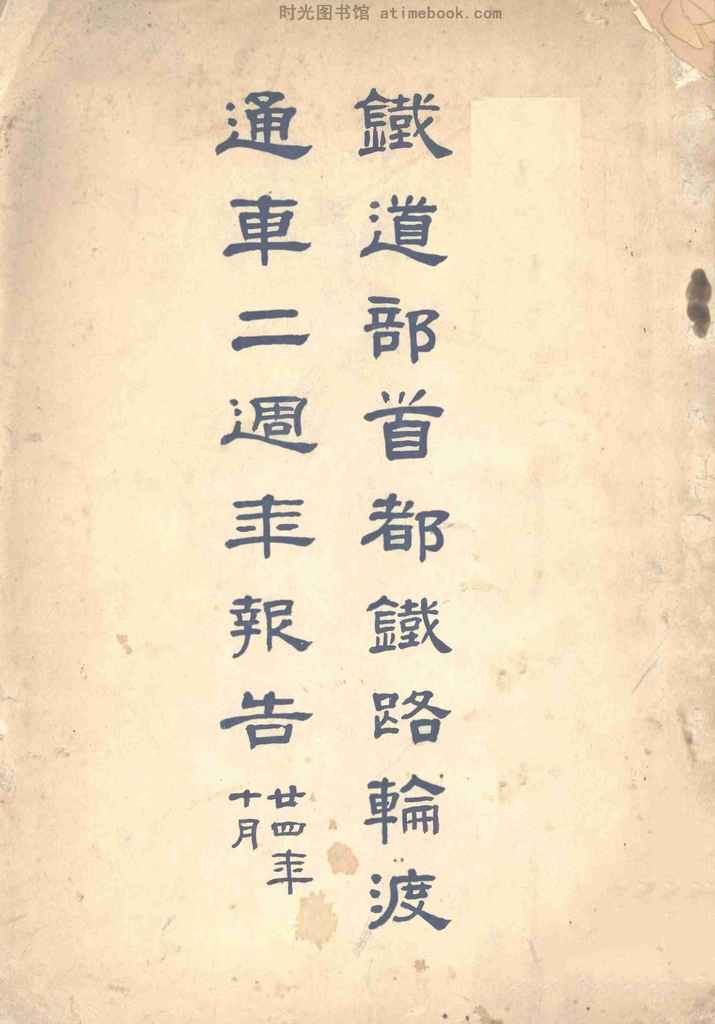 时光图书馆 atimebook.com
鐵道部首都鐵路輪渡
通車二週年報告
廿四年
十月